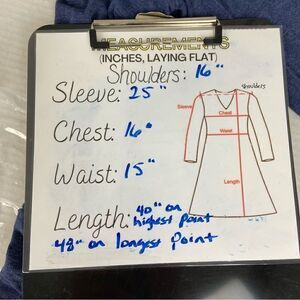 MEASUREMENTS
(INCHES, LAYING FLAT)
Shoulders: 16"
Sleeve: 25"
Chest: 16"
Waist: 15"
Length: 40" on highest point
48" on longest point
Shoulders
Sleeve
Chest
Waist
Length